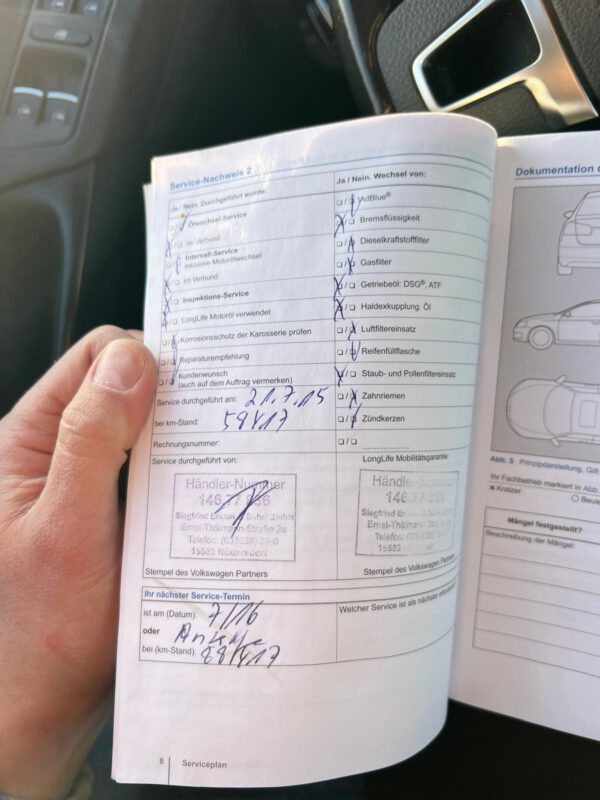 Service-Nachweis 2
Ja / Nein. Durchgeführt wurde:
Ölwechsel-Service
im Verbund
Intervall-Service
inklusive Motorölwechsel
im Verbund
Inspektions-Service
LongLife Motoröl verwendet
Korrosionsschutz der Karosserie prüfen
Reparaturempfehlung
Kundenwunsch
(auch auf dem Auftrag vermerken)
Service durchgeführt am: 21.7.15
bei km-Stand:
Rechnungsnummer:
Service durchgeführt von:
Händler-Nummer
Ernst-Thälmann-Straße 2a
15562 Rüdersdorf
Stempel des Volkswagen Partners
Ja / Nein. Wechsel von:
AdBlue®
Bremsflüssigkeit
Dieselkraftstofffilter
Gasfilter
Getriebeöl: DSG®, ATF
Haldexkupplung: Öl
Luftfiltereinsatz
Reifenfüllflasche
Staub- und Pollenfiltereinsatz
Zahnriemen
Zündkerzen
LongLife Mobilitätsgarantie:
Händler-Nummer
Ernst-Thälmann-Straße 2a
Stempel des Volkswagen Partners
Ihr nächster Service-Termin
ist am (Datum): 7/16
oder
bei (km-Stand):
Welcher Service ist als nächster
8 Serviceplan
Dokumentation
Abb. 5 Prinzipdarstellung.
Ihr Fachbetrieb markiert in Abb.
Kratzer
Beule
Mängel festgestellt?
Beschreibung der Mängel: